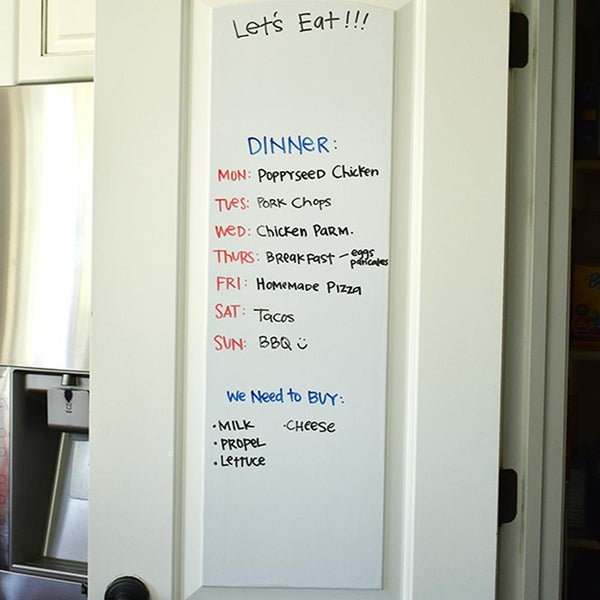 Let's Eat!!!
DINNeR:
MON: POPPYSEED Chicken
TUeS: PORK Chops
WeD: Chicken PaRM.
THURS: BReakFast – eggs
pancakes
FRI: HomemaDe Pizza
SAT: Tacos
SUN: BBQ
We Need to BUY:
·MILK ·CHeese
·PROPeL
·Lettuce